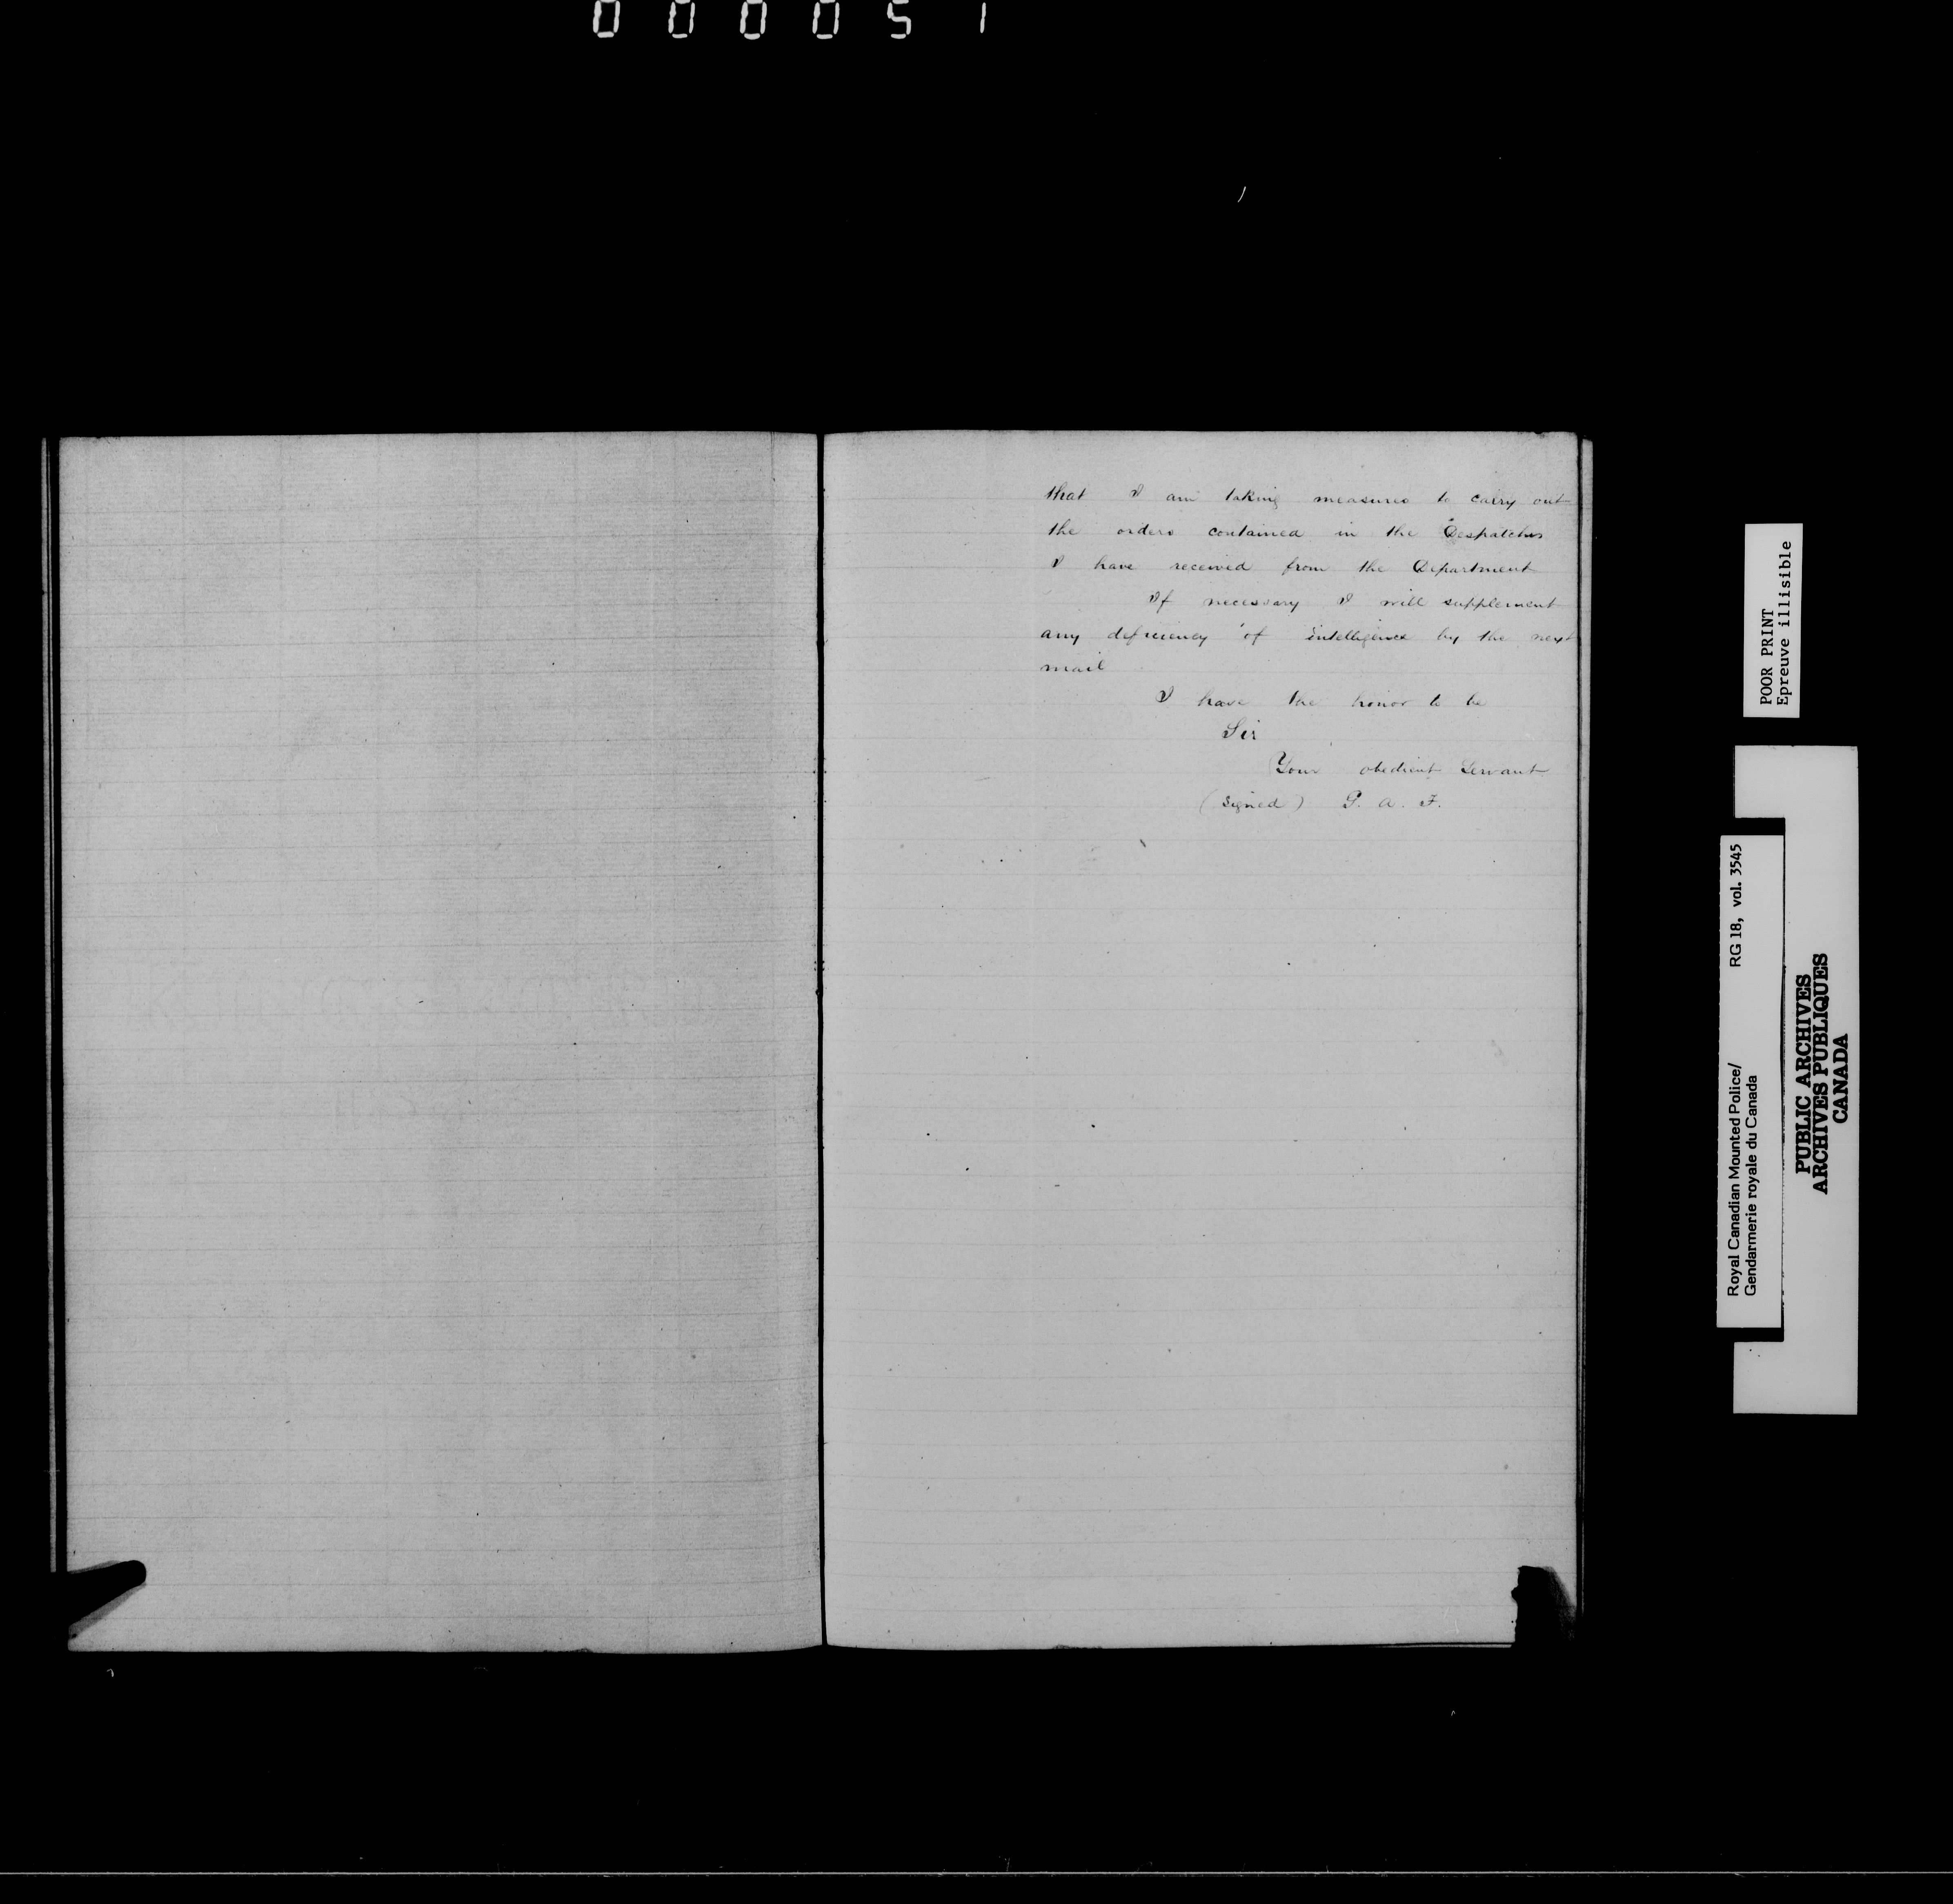 000051
that I am taking measures to carry out
the orders contained in the Despatches
I have received from the Department
If necessary I will supplement
any deficiency of intelligence by the next
mail
I have the honor to be
Sir
Your obedient Servant
(signed) G. A. F.
POOR PRINT
Epreuve illisible
Royal Canadian Mounted Police/ RG 18, vol. 3545
Gendarmerie royale du Canada
PUBLIC ARCHIVES
ARCHIVES PUBLIQUES
CANADA